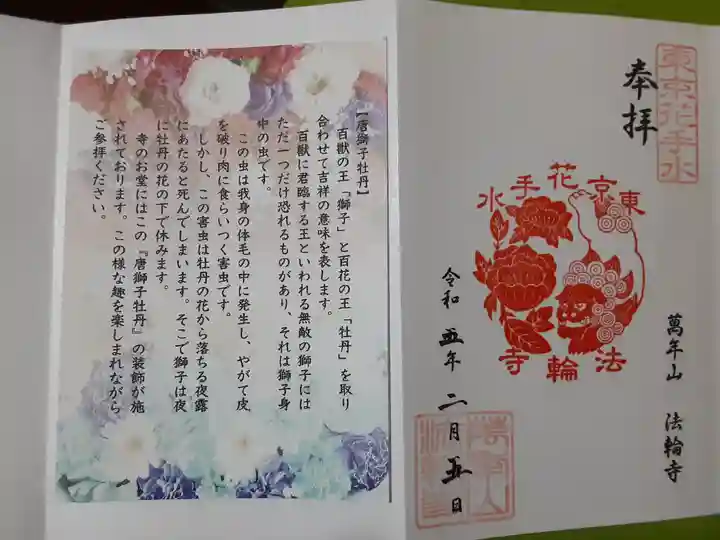 東京花手水
奉拝
東京花手水
法輪寺
萬年山 法輪寺
令和五年 二月五日
【唐獅子牡丹】
百獣の王「獅子」と百花の王「牡丹」を取り
合わせて吉祥の意味を表します。
百獣に君臨する王といわれる無敵の獅子には
ただ一つだけ恐れるものがあり、それは獅子身
中の虫です。
この虫は我身の体毛の中に発生し、やがて皮
を破り肉に食らいつく害虫です。
しかし、この害虫は牡丹の花から落ちる夜露
にあたると死んでしまいます。そこで獅子は夜
に牡丹の花の下で休みます。
寺のお堂にはこの『唐獅子牡丹』の装飾が施
されております。この様な趣を楽しまれながら
ご参拝ください。